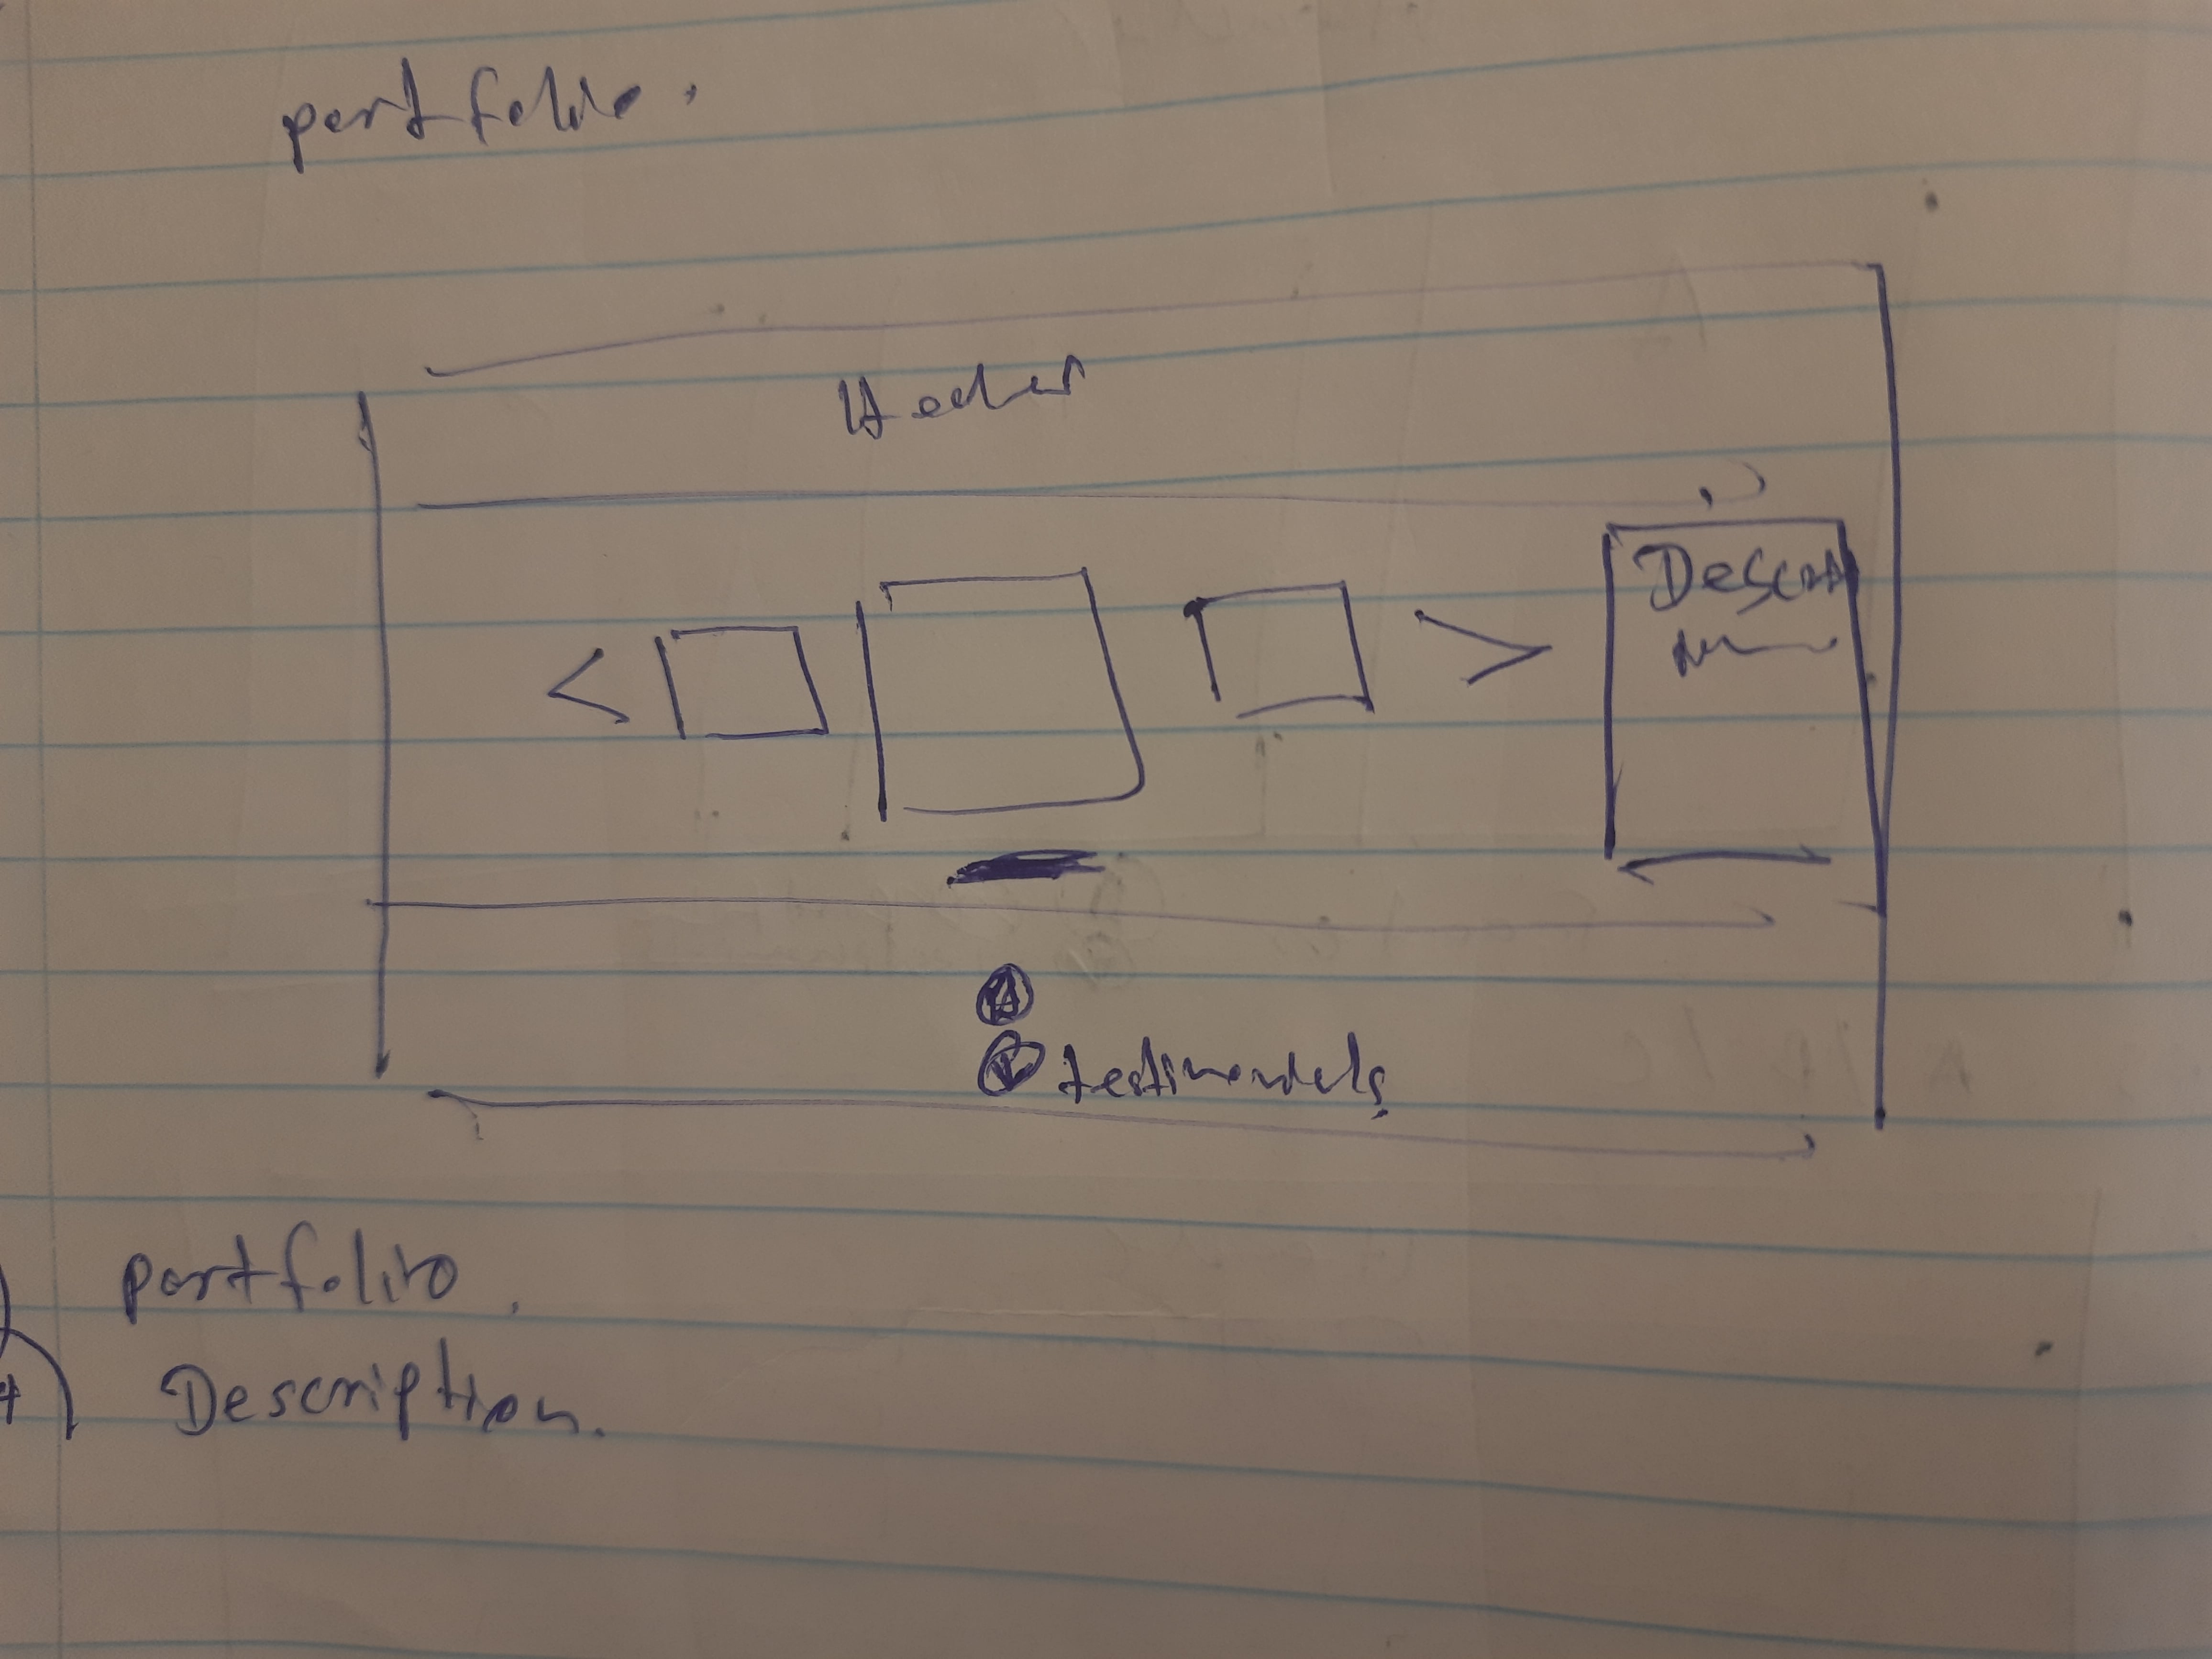 portfolio.
Header
< >
Descri
testimonials
portfolio.
Description.